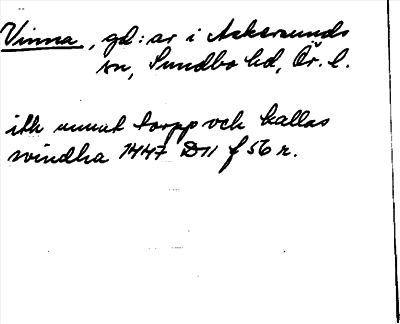 Vinna, gd:ar i Askersunds
sn, Sundbo hd, Ör. l.
itt annat torpp och kallas
vindha 1447 D11 f 56 r.